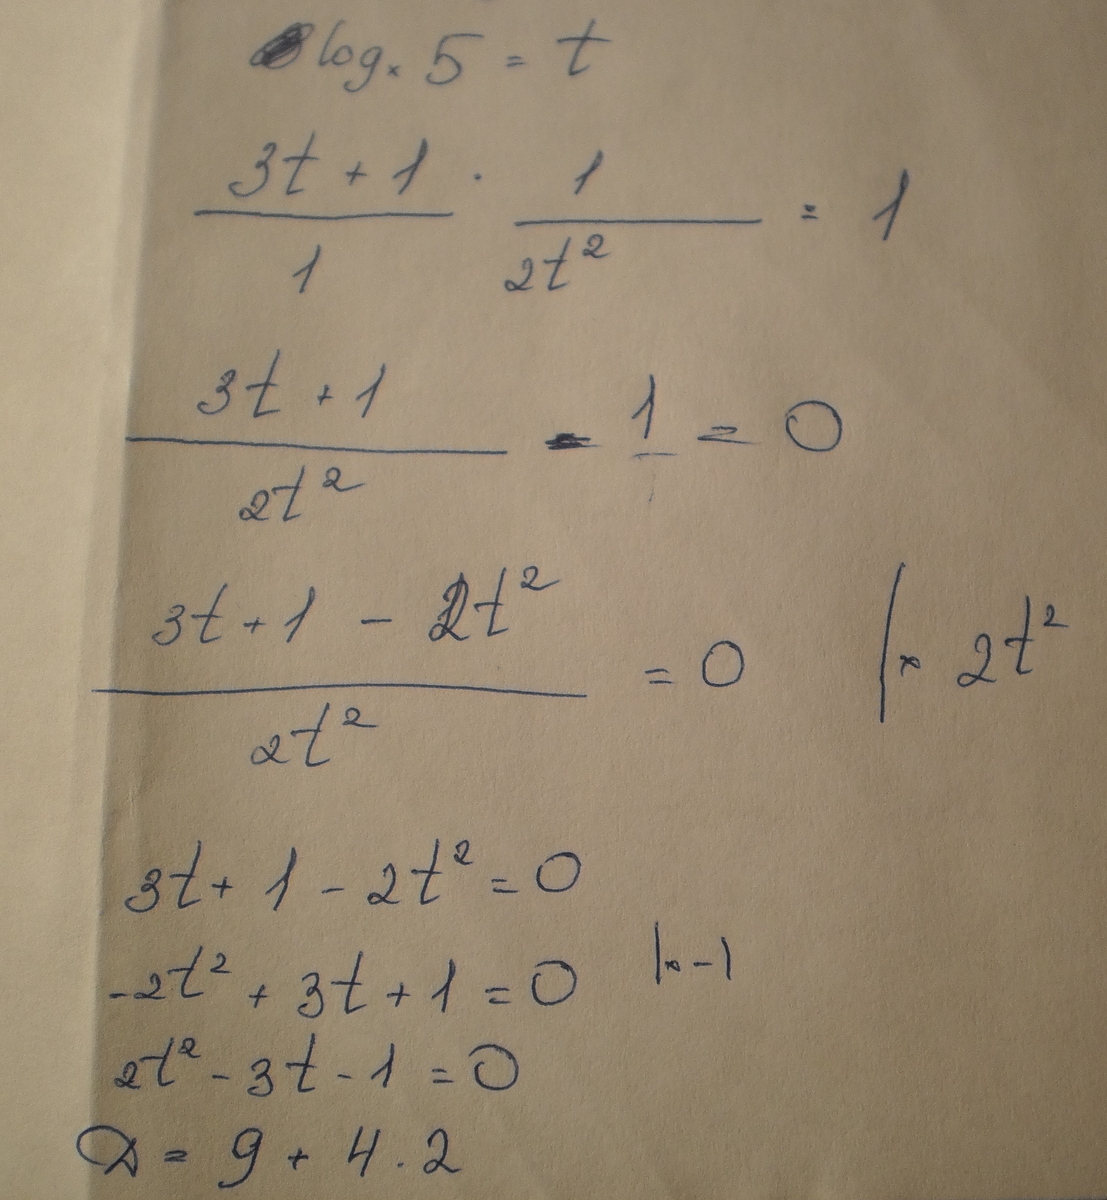 logₓ 5 = t
(3t + 1)/1 · 1/(2t²) = 1
(3t + 1)/(2t²) - 1 = 0
(3t + 1 - 2t²)/(2t²) = 0 |× 2t²
3t + 1 - 2t² = 0
-2t² + 3t + 1 = 0 |× -1
2t² - 3t - 1 = 0
D = 9 + 4 . 2